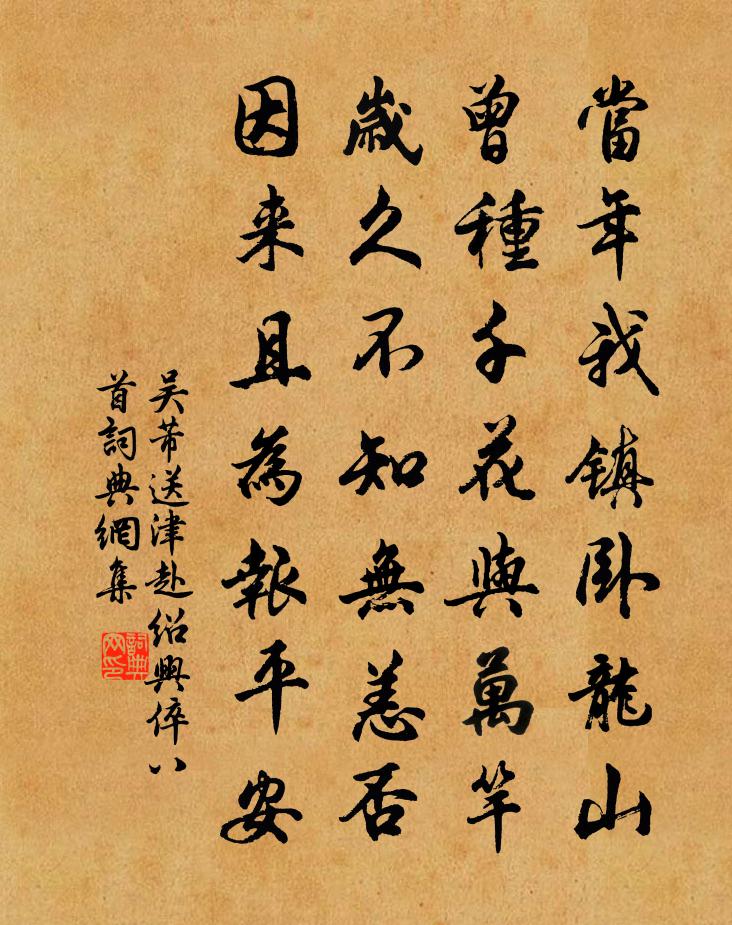 當年我鎮卧龍山
曾種千花與萬竿
歲久不知無恙否
因来且為報平安
吴芾送津赴紹興倅八
首詞典網集
詞典網印